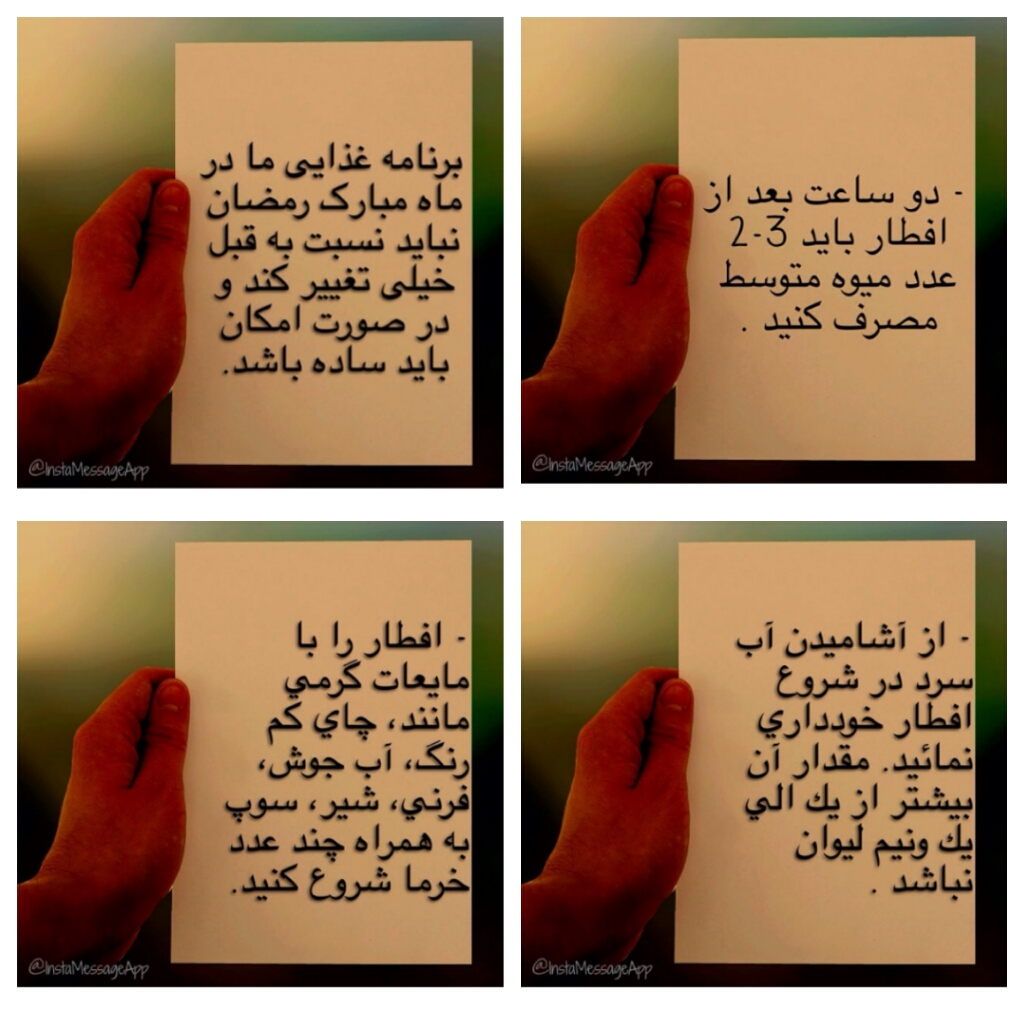 برنامه غذایی ما در
ماه مبارک رمضان
نباید نسبت به قبل
خیلی تغییر کند و
در صورت امکان
باید ساده باشد.
@InstaMessageApp
- دو ساعت بعد از
افطار باید 3-2
عدد میوه متوسط
مصرف کنید .
@InstaMessageApp
- افطار را با
مايعات گرمي
مانند، چاي كم
رنگ، آب جوش،
فرني، شير، سوپ
به همراه چند عدد
خرما شروع كنيد.
@InstaMessageApp
- از آشاميدن آب
سرد در شروع
افطار خودداري
نمائيد. مقدار آن
بيشتر از يك الي
يك ونيم ليوان
نباشد .
@InstaMessageApp